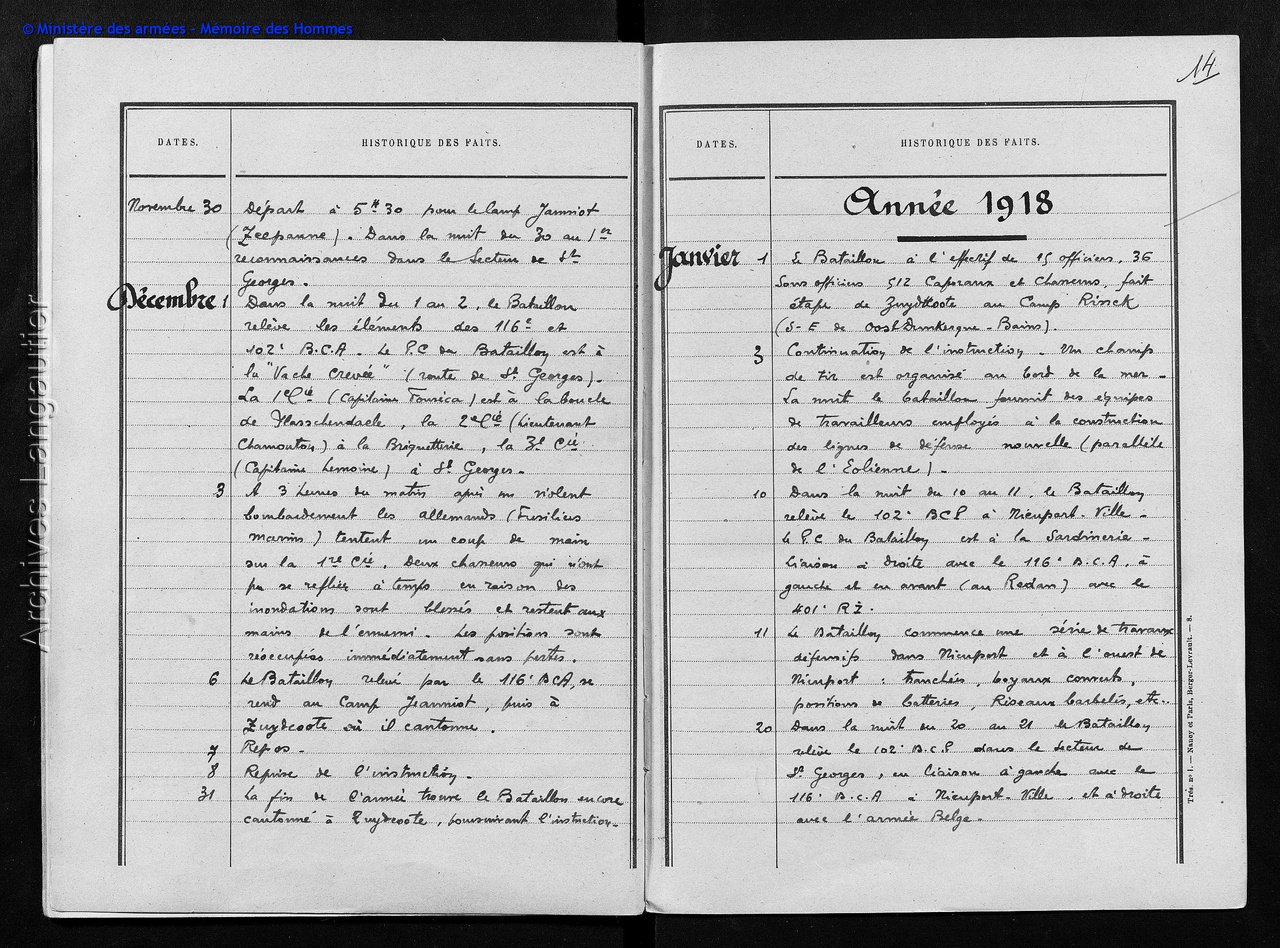 © Ministère des armées - Mémoire des Hommes
Archives Langautier
14
DATES. HISTORIQUE DES FAITS.
Novembre 30 Départ à 5H30 pour le Camp Janniot
(Zeepanne). Dans la nuit du 30 au 1er
reconnaissances dans le Secteur de St
Georges.
Décembre 1 Dans la nuit du 1 au 2, le Bataillon
relève les éléments des 116e et
102e B.C.A. Le P.C du Bataillon est à
la "Vache Crevée" (route de St Georges).
La 1e Cie (Capitaine Fonséca) est à la boucle
de , la 2e Cie (Lieutenant
Chamouton) à la Briquetterie, la 3e Cie
(Capitaine Lemoine) à St Georges.
3 A 3 heures du matin après un violent
bombardement les allemands (Fusiliers
marins) tentent un coup de main
sur la 1re Cie. Deux chasseurs qui n'ont
pu se replier à temps en raison des
inondations sont blessés et restent aux
mains de l'ennemi. Les positions sont
réoccupées immédiatement sans pertes.
6 Le Bataillon relevé par le 116e BCA, se
rend au Camp Jeanniot, puis à
Zuydcoote où il cantonne.
7 Repos.
8 Reprise de l'instruction.
31 La fin de l'année trouve le Bataillon encore
cantonné à Zuydcoote, poursuivant l'instruction.
DATES. HISTORIQUE DES FAITS.
Année 1918
Janvier 1 Le Bataillon à l'effectif de 15 officiers, 36
Sous officiers 512 Caporaux et Chasseurs, fait
étape de Zuydkoote au Camp Rinck
(S-E de Oost Dunkerque-Bains).
3 Continuation de l'instruction. Un champ
de tir est organisé au bord de la mer.
La nuit le bataillon fournit des équipes
de travailleurs employés à la construction
des lignes de défense nouvelle (parallèle
de l'Eolienne).
10 Dans la nuit du 10 au 11, le Bataillon
relève le 102e BCP à Nieuport-Ville.
Le P.C du Bataillon est à la Sardinerie.
Liaison à droite avec le 116e B.C.A, à
gauche et en avant (au Redan) avec le
401e RI.
11 Le Bataillon commence une série de travaux
défensifs dans Nieuport et à l'ouest de
Nieuport : tranchées, boyaux couverts,
positions de batteries, Réseaux barbelés, etc..
20 Dans la nuit du 20 au 21 le Bataillon
relève le 102e B.C.P dans le Secteur de
St Georges, en liaison à gauche avec le
116e B.C.A à Nieuport-Ville, et à droite
avec l'armée Belge.
Trés. nº 1. — Nancy et Paris, Berger-Levrault. — 8.